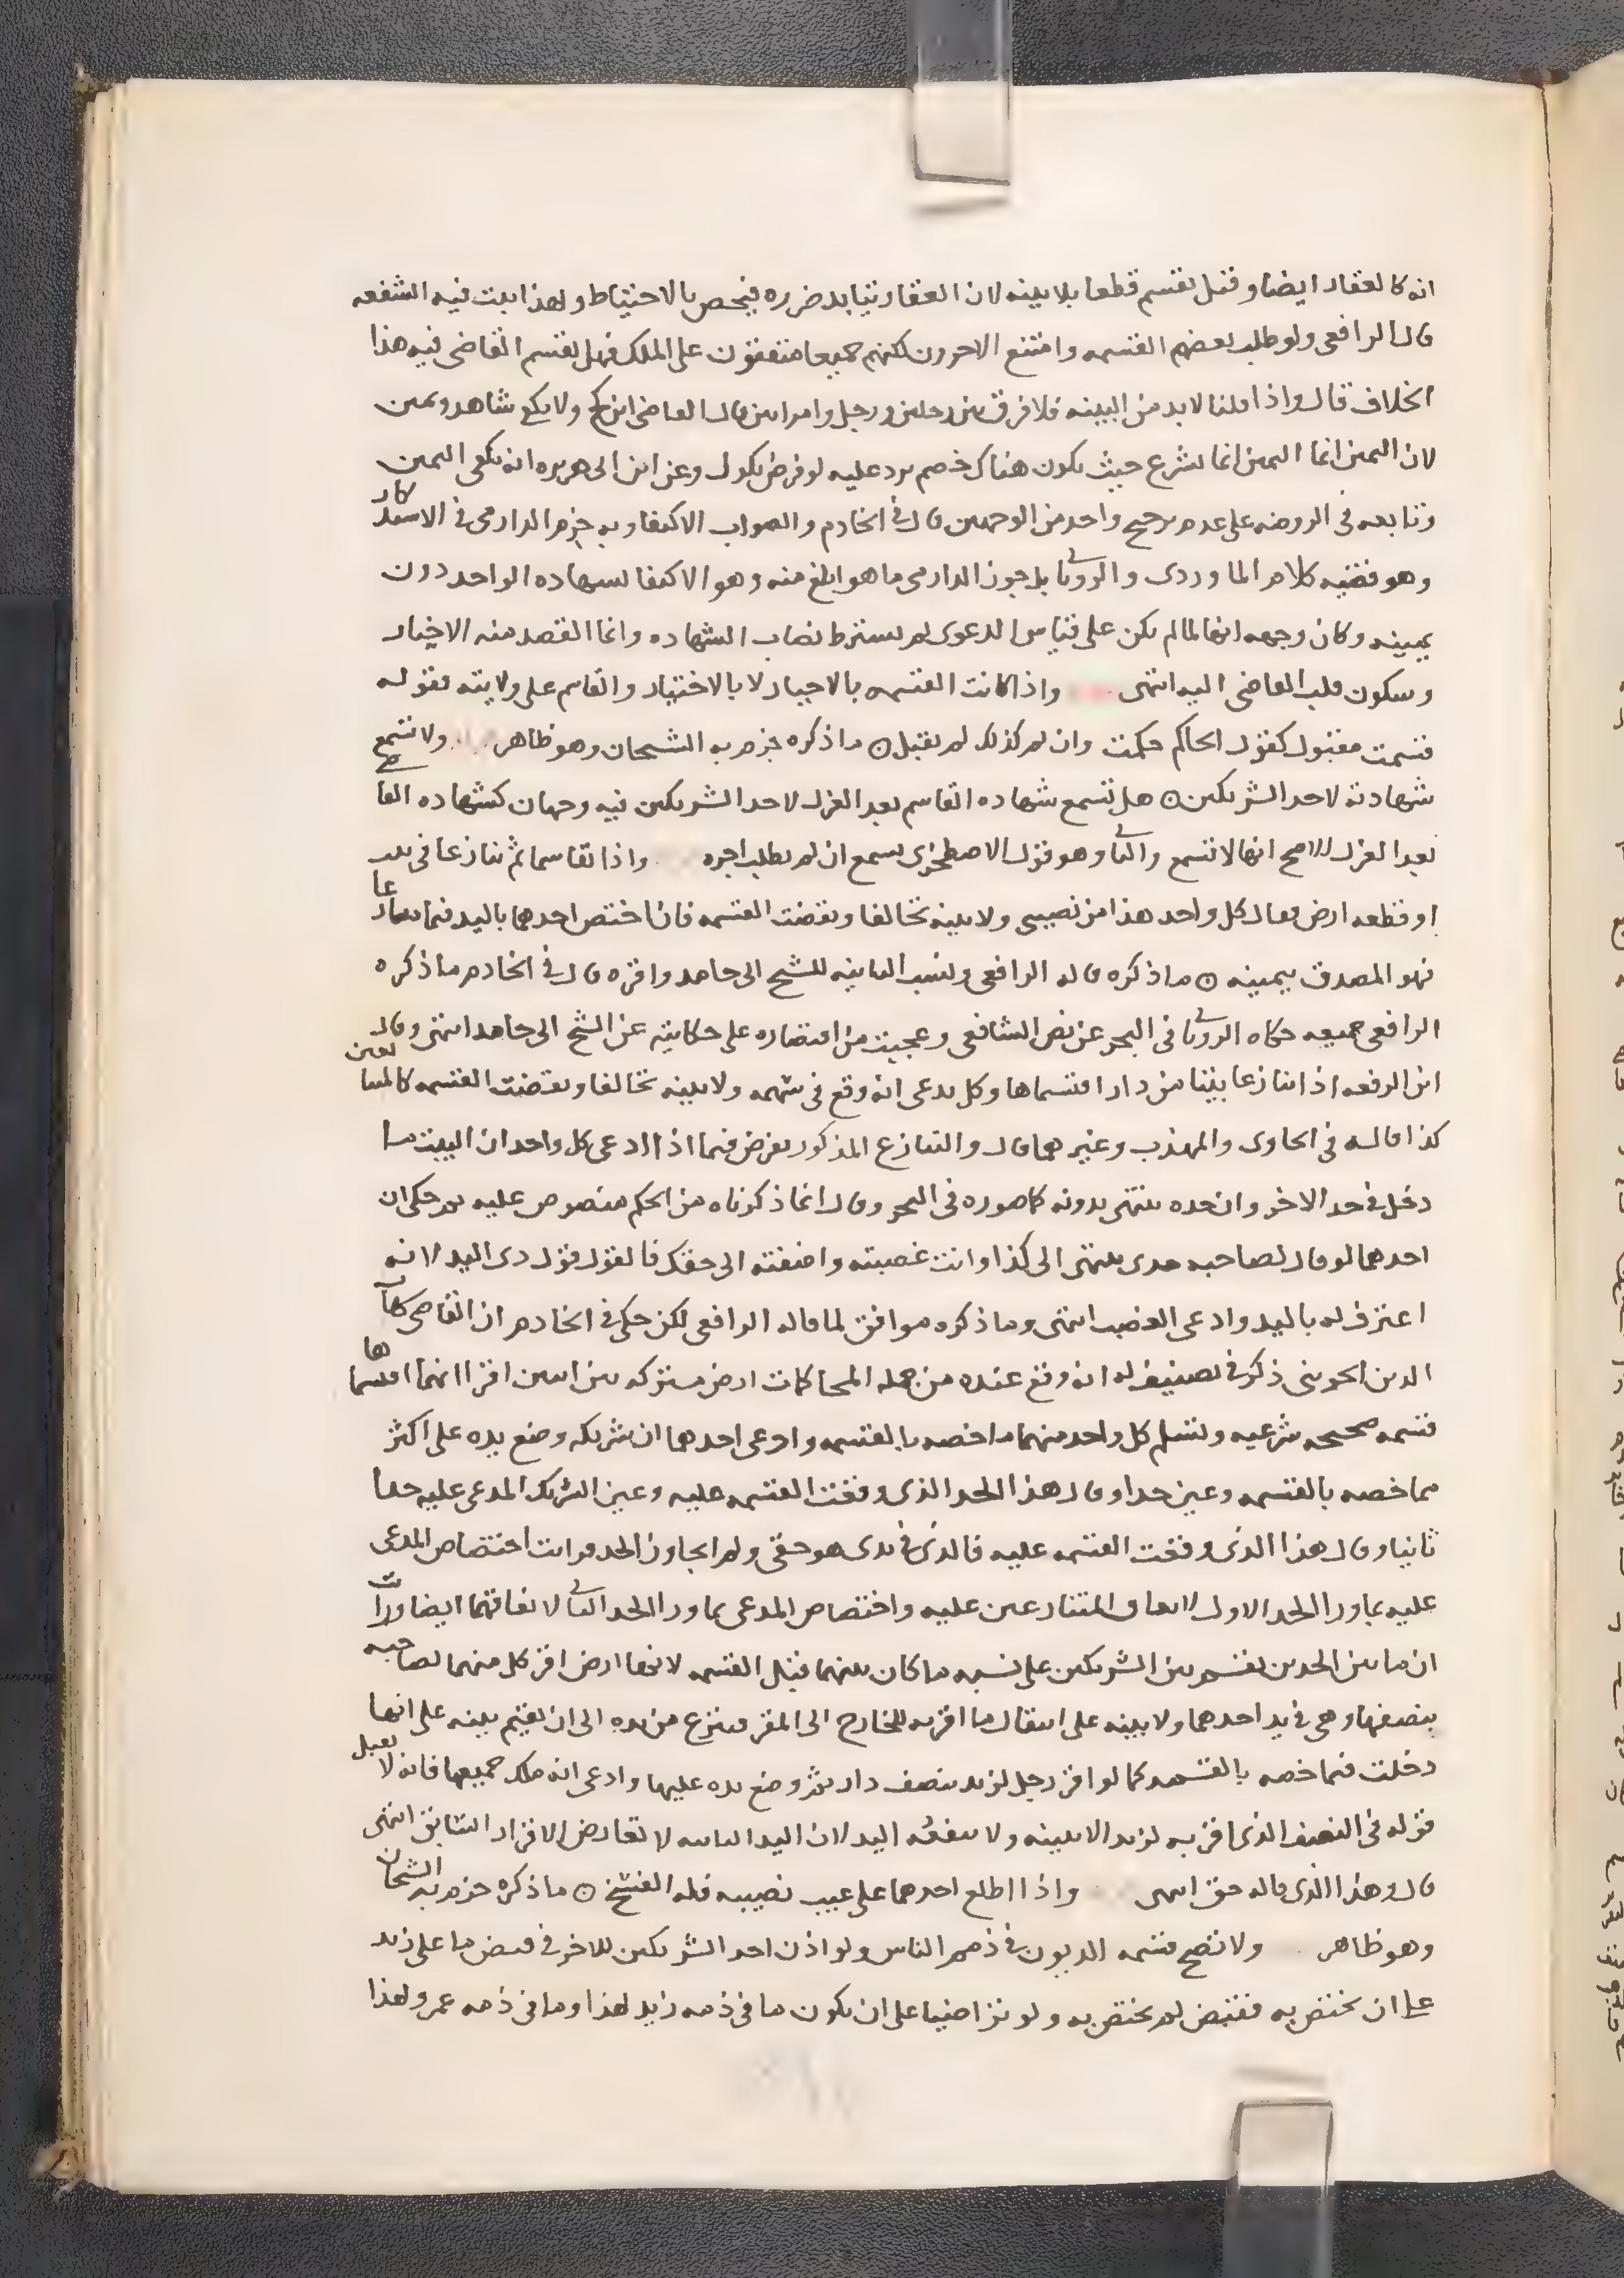 انه كالعقار ايضا وقيل يقسم قطعا بلا بينه لان العقار يتابد ضرره فيخص بالاحتياط ولهذا يثبت فيه الشفعه
قال الرافعي ولو طلب بعضهم القسمه وامتنع الاخرون لكنهم جميعا متفقون على الملك فهل يقسم القاضي فيه هذا
الخلاف قال واذا قلنا لا بد من البينه فلا فرق بين رجلين ورجل وامراتين قال القاضي ابن كج ولا يكفي شاهد ويمين
لان اليمين انما اليمين انما تشرع حيث يكون هناك خصم يرد عليه لو فرض نكول وعن ابن ابي هريره انه يكفي اليمين
وتابعه في الروضه على عدم ترجيح واحد من الوجهين قال في الخادم والصواب الاكتفا وبه جزم الدارمي في الاستذكار
وهو قضيه كلام الماوردي والروياني بل جوز الدارمي ما هو ابلغ منه وهو الاكتفا بشهاده الواحد دون
يمينه وكان وجهه انها لما لم يكن على قياس الدعوى لم يشترط نصاب الشهاده وانما القصد منه الاخبار
وسكون قلب القاضي اليه انتهى واذا كانت القسمه بالاجبار لا بالاختيار والقاسم على ولايته فقوله
قسمت مقبول كقول الحاكم حكمت وان لم كذلك لم يقبل ۞ ما ذكره جزم به الشيخان وهو ظاهر ولا تسمع
شهادته لاحد الشريكين ۞ هل تسمع شهاده القاسم بعد العزل لاحد الشريكين فيه وجهان كشهاده القاضي
بعد العزل الاصح انها لا تسمع والثاني وهو قول الاصطخري يسمع ان لم يطلب اجره واذا تقاسما ثم تنازعا في بيت
او قطعه ارض وقال كل واحد هذا من نصيبي ولا بينه تحالفا ونقضت القسمه فان اختص احدهما باليد فيما تنازعا
فهو المصدق بيمينه ۞ ما ذكره قاله الرافعي ونسب الثانيه للشيخ ابي حامد واقره قال في الخادم ما ذكره
الرافعي جميعه حكاه الروياني في البحر عن نص الشافعي وعجيب من اقتصاره على حكايته عن الشيخ ابي حامد انتهى وقال
ابن الرفعه اذا تنازعا بيتا من دار اقتسماها وكل يدعي انه وقع في سهمه ولا بينه تحالفا ونقضت القسمه كالمتبايعين
كذا قاله في الحاوي والمهذب وغيرهما قال والتنازع المذكور يفرض فيما اذا ادعى كل واحد ان البيت
دخل في حد الاخر وان حده ينتهي بدونه كما صوره في البحر وقال انما ذكرناه من الحكم منصوص عليه ثم حكى ان
احدهما لو قال لصاحبه حدي ينتهي الى كذا وانت غصبته واضفته الى حقك فالقول قول ذي اليد لانه
اعترف له باليد وادعى الغصب انتهى وما ذكره موافق لما قاله الرافعي لكن حكى في الخادم ان القاضي شهاب
الدين الخويي ذكر في تصنيف له انه وقع عنده من جمله المحاكمات ارض مشتركه بين اثنين اقرا انهما اقتسماها
قسمه صحيحه شرعيه وتسلم كل واحد منهما ما خصه بالقسمه وادعى احدهما ان شريكه وضع يده على اكثر
مما خصه بالقسمه وعين حدا وقال هذا الحد الذي وقعت القسمه عليه وعين الشريك المدعى عليه حدا
ثانيا وقال هذا الذي وقعت القسمه عليه فالذي في يدي هو حقي ولم اجاوز الحد فرايت اختصاص المدعى
عليه بما ورا الحد الاول لاتفاق المتنازعين عليه واختصاص المدعي بما ورا الحد الثاني لاتفاقهما ايضا ورايت
ان ما بين الحدين يقسم بين الشريكين على نسبه ما كان بينهما قبل القسمه لانها ارض اقر كل منهما لصاحبه
بنصفها وهي في يد احدهما ولا بينه على انتقال ما اقر به للخارج الى المقر فينزع من يده الى ان يقيم بينه على انها
دخلت فيما خصه بالقسمه كما لو اقر رجل لزيد بنصف دار ثم وضع يده عليها وادعى انه ملك جميعها فانه لا يقبل
قوله في النصف الذي اقر به لزيد الا ببينه ولا ينفعه اليد لان اليد الثابته لا تعارض الاقرار السابق انتهى
قال وهذا الذي قاله حق انتهى واذا اطلع احدهما على عيب نصيبه فله الفسخ ۞ ما ذكره جزم به الشيخان
وهو ظاهر ولا تصح قسمه الديون في ذمم الناس ولو اذن احد الشريكين للاخر في قبض ما على زيد
على ان يختص به فقبض لم يختص به ولو تراضيا على ان يكون ما في ذمه زيد لهذا وما في ذمه عمرو لهذا